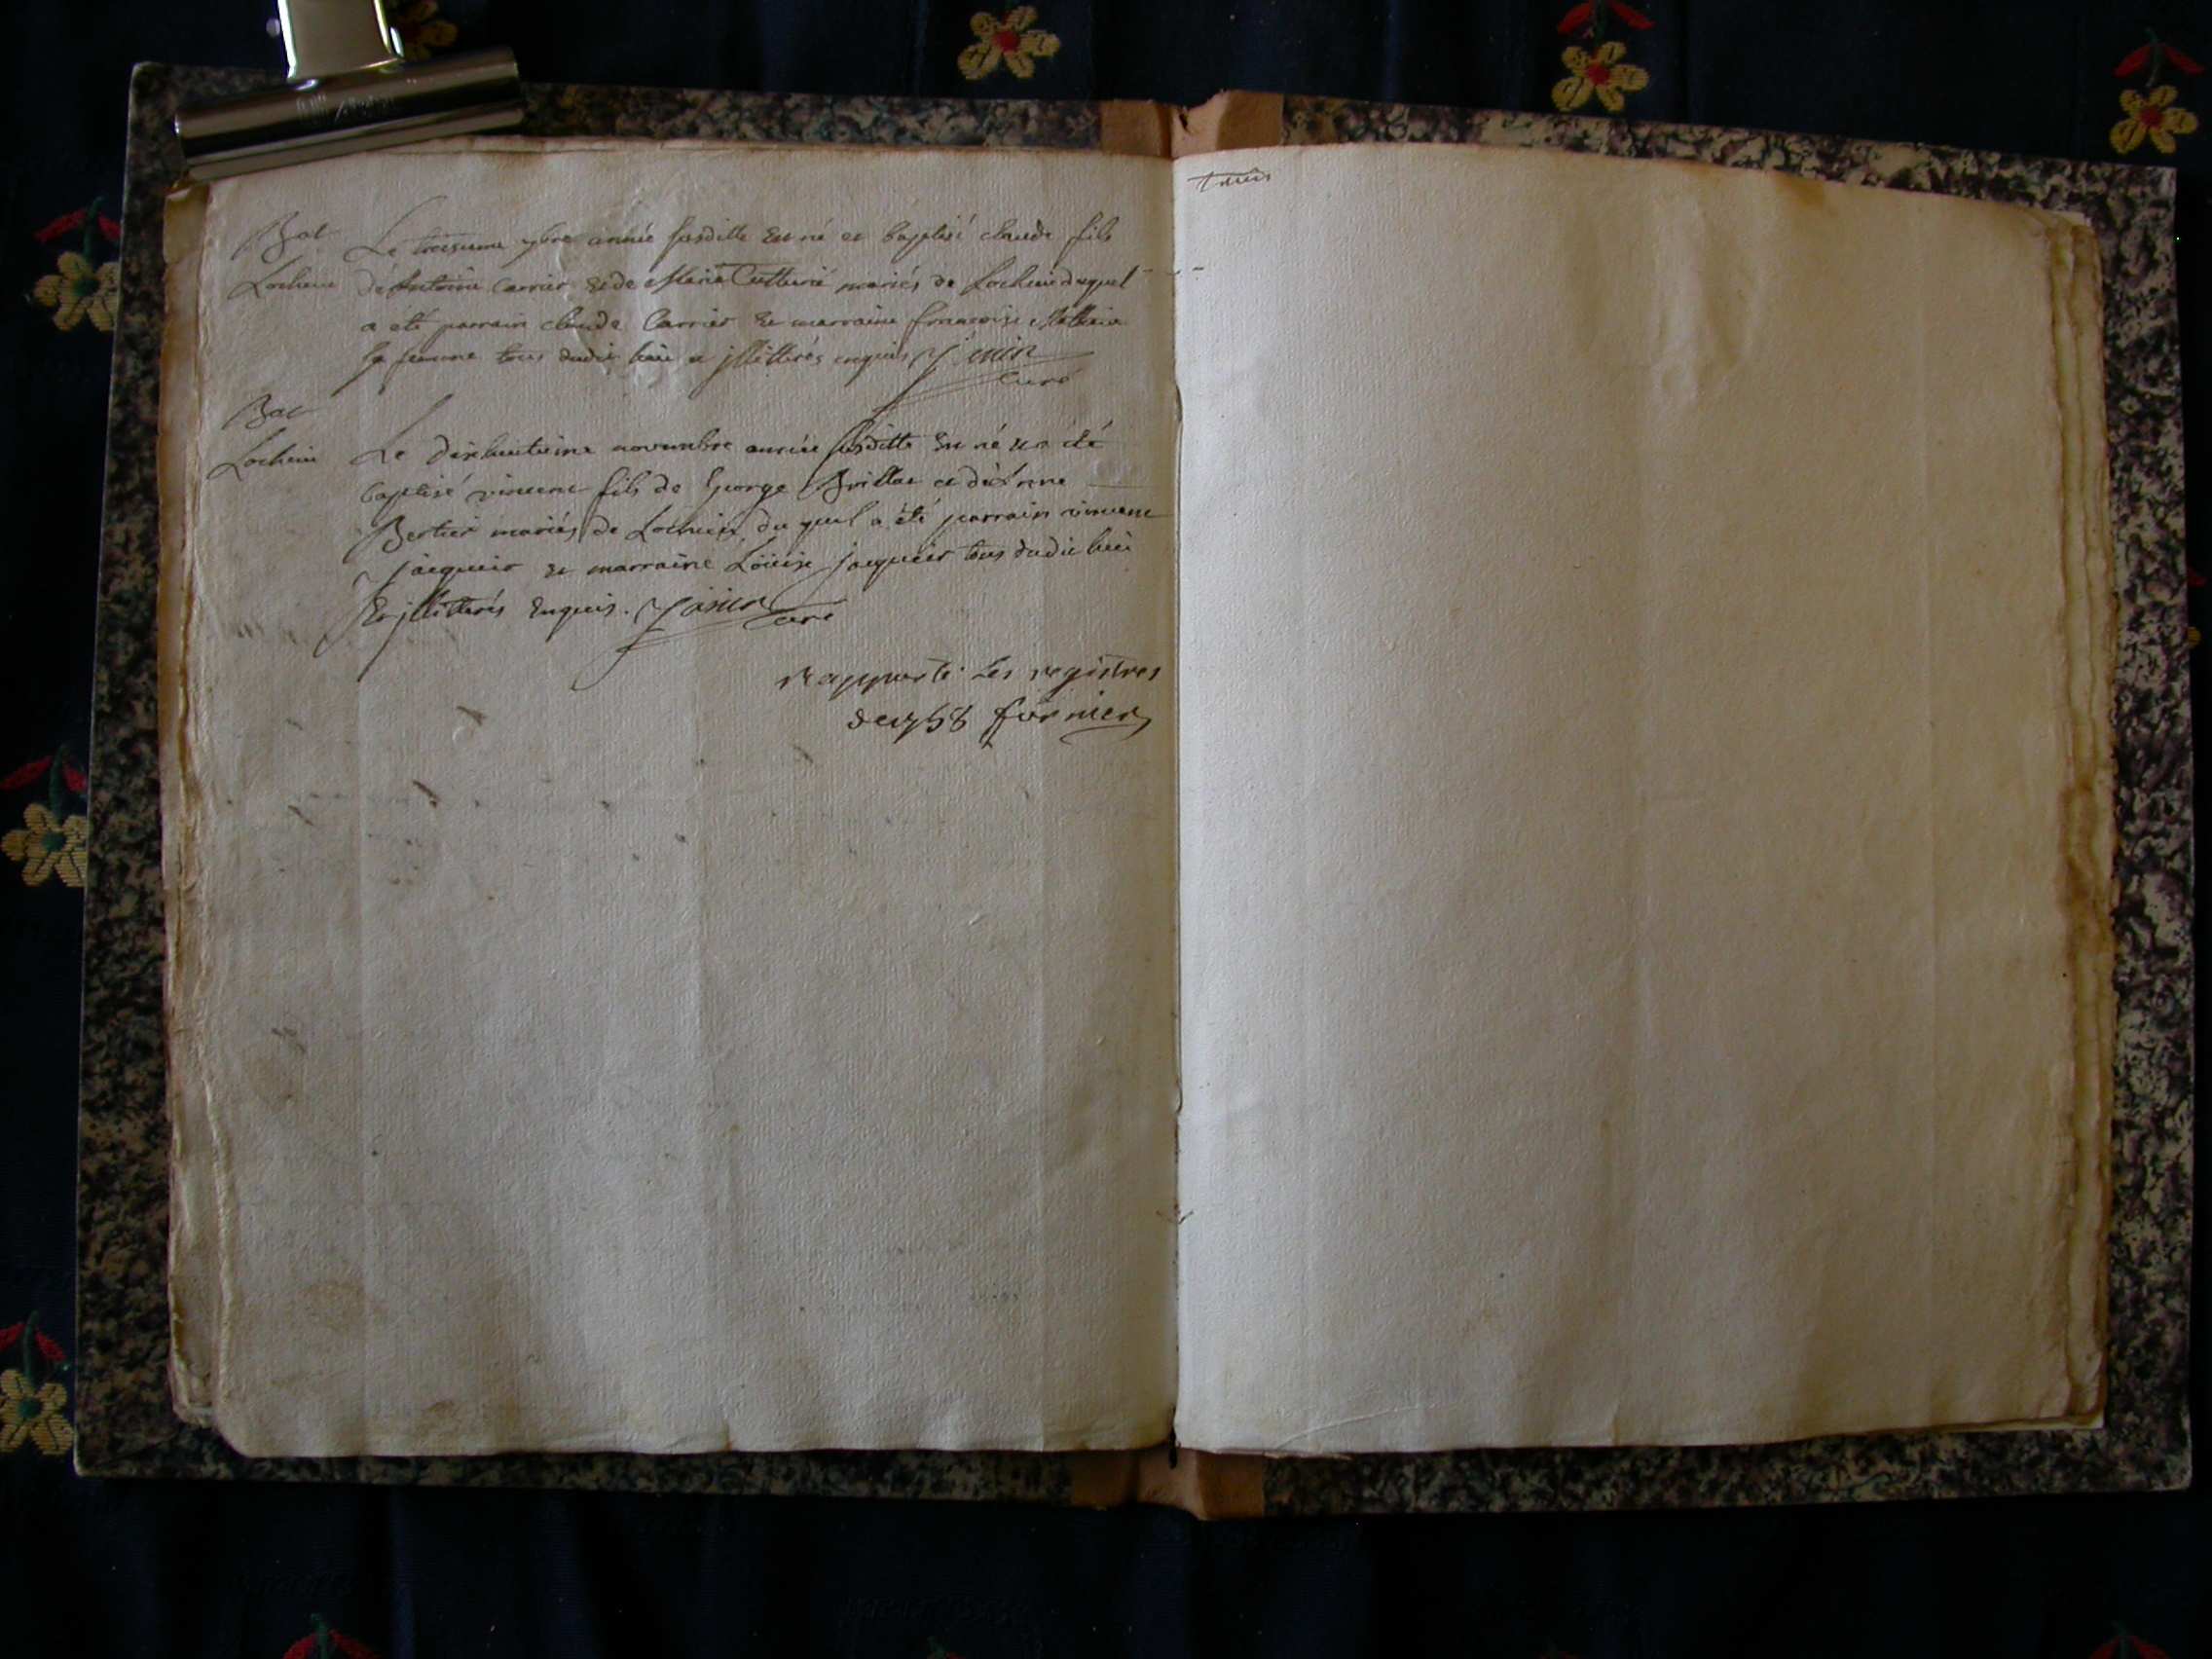 Bat
Lochieu
Le treisieme 7bre année susditte Est né et baptisé claude fils
d'Antoine Carrier Et de Marie Cutturié mariés de Lochieu duquel
a eté parrain claude Carrier Et marraine francoise
sa femme tous dudit lieu et jllitterés enquis janin
curé
Bat
Lochieu
Le dixhuitieme novembre année susditte Est né et a été
baptisé vincent fils de George Brillat et d'Anne
Bertier mariés de Lochieu, du quel a été parrain vincent
jacquier et marraine Loüise jacquier tous dudit lieu
Et jllitterés Enquis. janin
curé
rapporté Les registres
de 1758 fornier